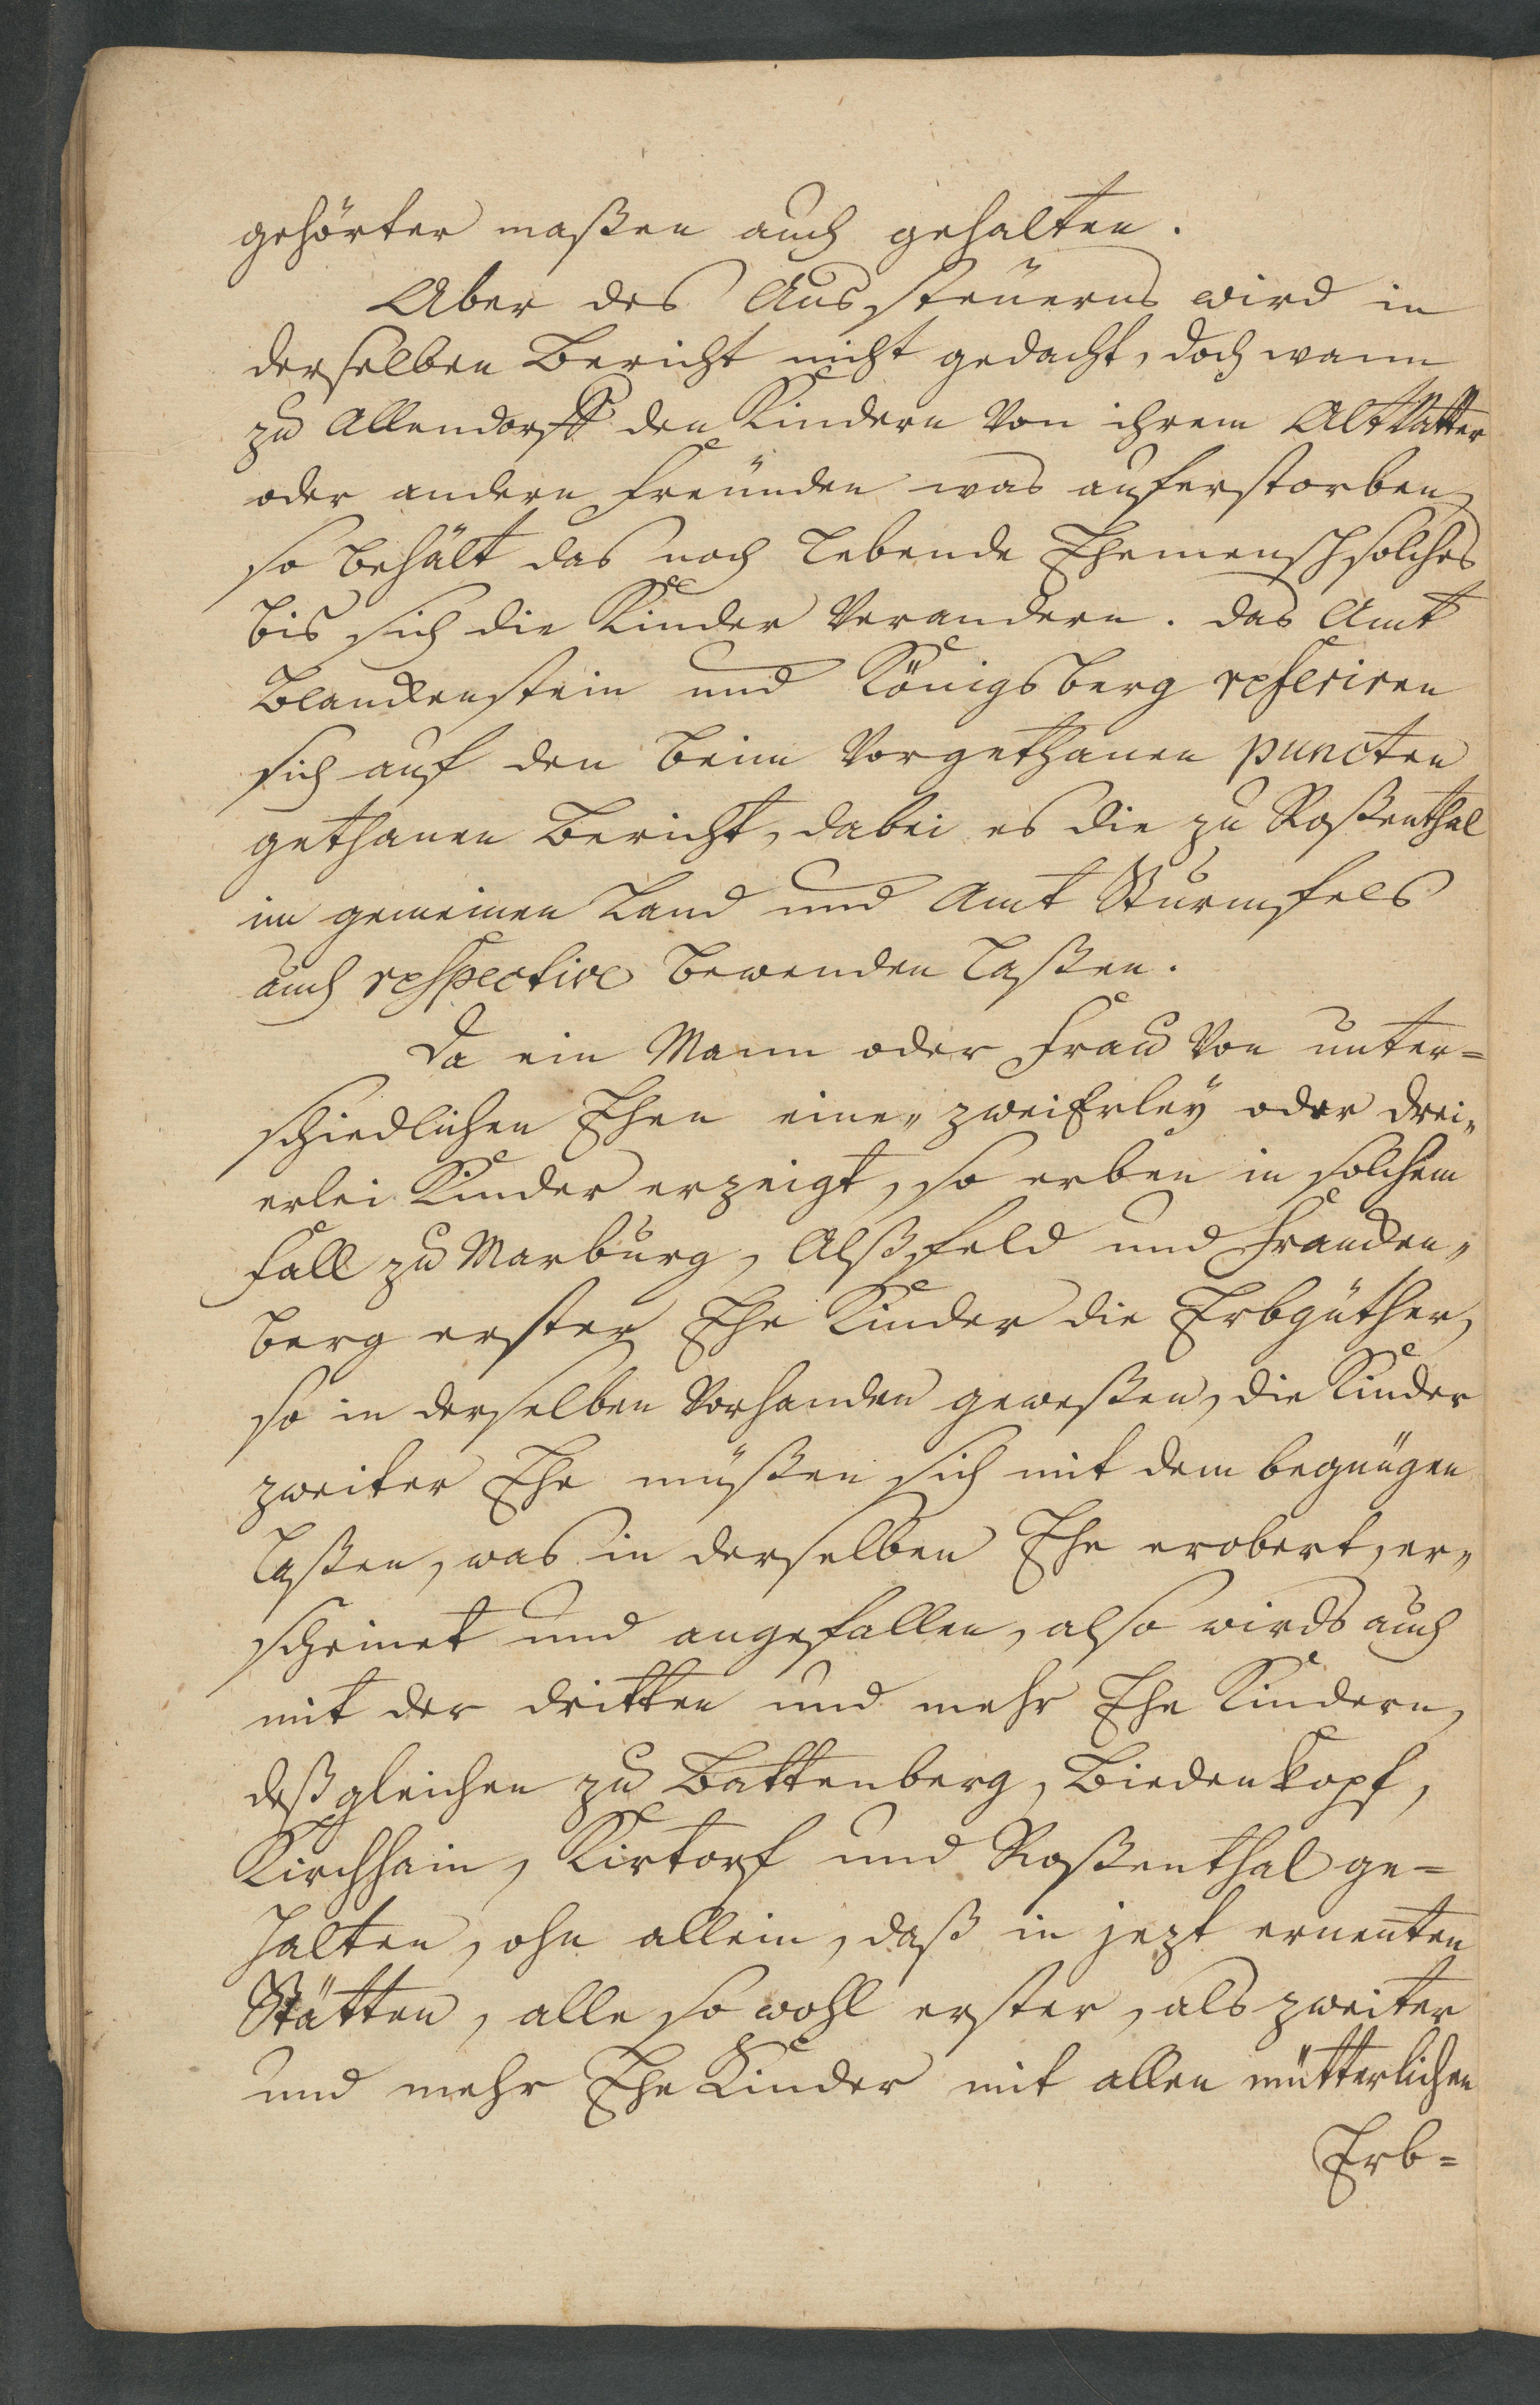 gehörter maßen auch gehalten.
Aber des Aussteüerns wird in
derselben Bericht nicht gedacht, doch wann
zu Allendorff den Kindern von ihrem AltVatter
oder andern Freünden was anferstorben,
so behält das noch lebende Ehemensch solches
bis sich die Kinder verandern. das Amt
Blanckenstein und Königsberg referiren
sich auf den beim vorgethanen puncten
gethanen Bericht, dabei es die zu Roßenthal
im gemeinen Land und Amt Sturmfels
auch respective bewenden laßen.
Da ein Mann oder Frau von unter=
schiedlichen Ehen eine„ zweiErley oder drei„
erlei Kinder erzeigt, so erben in solchem
Fall zu Marburg, Alßfeld und Francken„
berg erster Ehe Kinder die Erbgüther,
so in derselben vorhanden geweßen, die Kinder
zweiter Ehe müßen sich mit dem begnügen
laßen, was in derselben Ehe erobert, er„
scheinet und angefallen, also wirds auch
mit der dritten und mehr Ehe Kindern,
deßgleichen zu Battenberg, Biedenkopf,
Kirchhain, Kirtorf und Roßenthal ge=
halten, ohn allein, daß in jezt ernenten
Stätten, alle so wohl erster, als zweiter
und mehr Ehe Kinder mit allen mütterlichen
Erb=